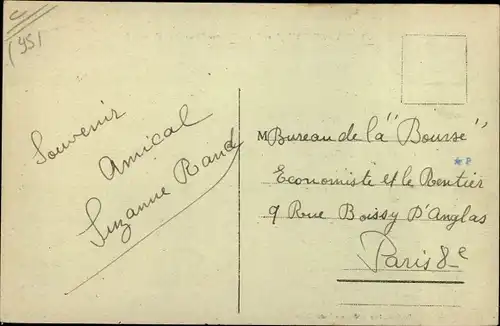 (95)
Souvenir
Amical
Suzanne Rand
M Bureau de la "Bourse"
Economiste et le Rentier
9 Rue Boissy D'Anglas
Paris 8e